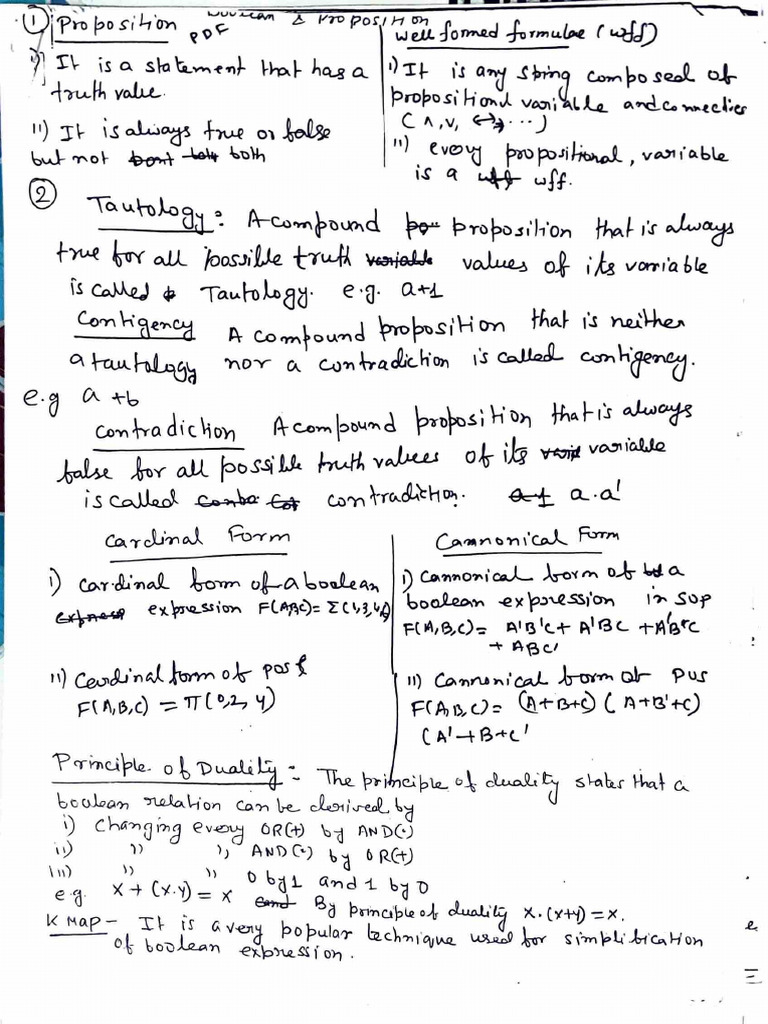 ① Proposition
PDF
& PROPOSITION
i) It is a statement that has a
truth value.
ii) It is always true or false
but not both
Well formed formulae (wff)
i) It is any string composed of
propositional variable and connecties
(∧, ∨, ↔, ...)
ii) every propositional, variable
is a wff.
② Tautology: A compound proposition that is always
true for all possible truth values of its variable
is called Tautology. e.g. a+1
Contigency A compound proposition that is neither
a tautology nor a contradiction is called contigency.
e.g a+b
contradiction A compound proposition that is always
false for all possible truth values of its variable
is called contradiction. a.a'
Cardinal Form
i) cardinal form of a boolean
expression F(ABC)= Σ(1,3,4,6)
ii) Cardinal form of POS
F(A,B,C) = π(0,2,4)
Cannonical Form
i) Cannonical form of a
boolean expression in SOP
F(A,B,C)= A'B'C + A'BC +
+ ABC'
ii) Cannonical form of POS
F(A,B,C)= (A+B+C) (A+B'+C)
(A'+B+C'
Principle of Duality:- The principle of duality states that a
boolean relation can be derived by
i) Changing every OR(+) by AND(.)
ii) " " AND(.) by OR(+)
iii) " " 0 by 1 and 1 by 0
e.g. X+(X.Y) = X By principle of duality X.(X+Y)=X.
K MAP - It is a very popular technique used for simplification
of boolean expression.